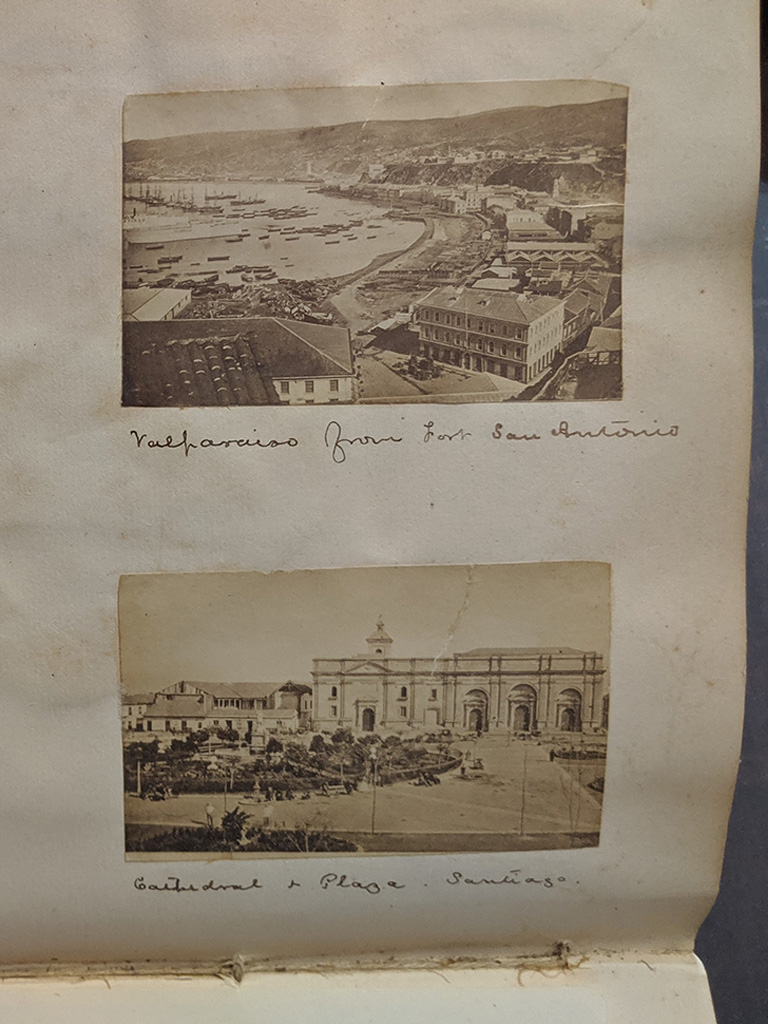 Valparaiso from Fort San António
Cathedral & Plaza. Santiago.